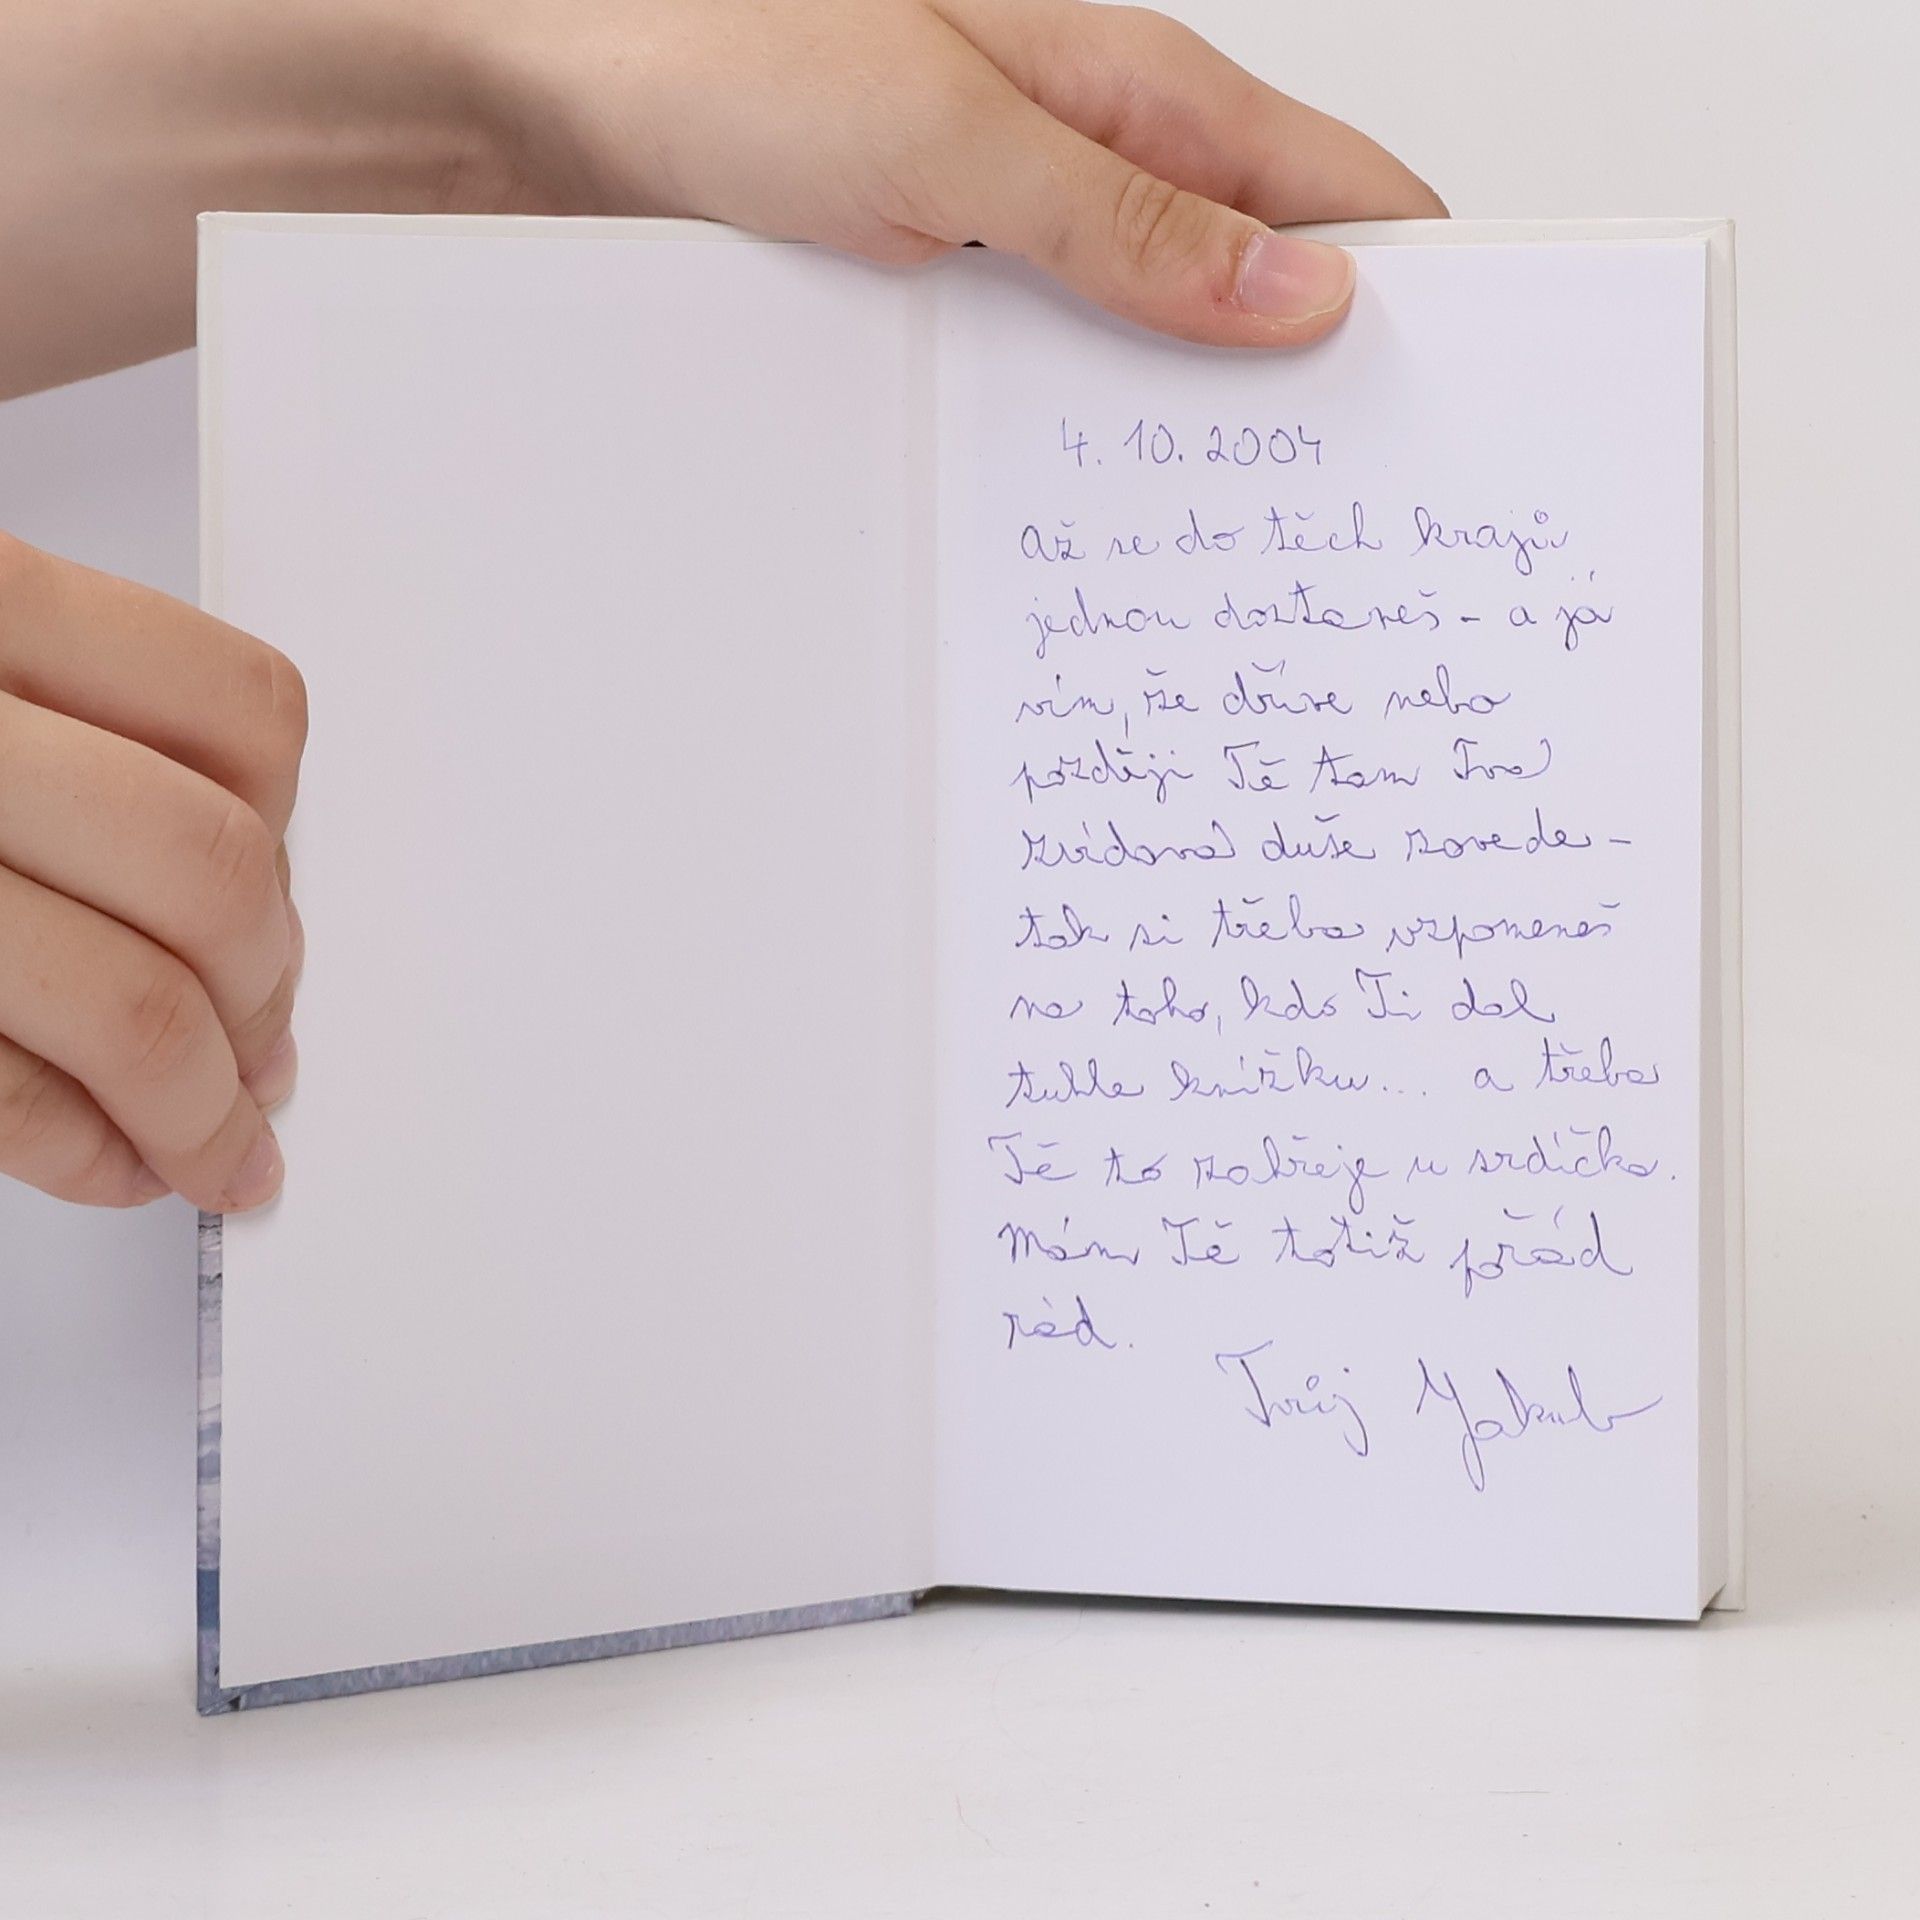 4. 10. 2004
Až se do těch krajů
jednou dostaneš - a já
vím, že dříve nebo
později Tě tam Tvá
zvídavá duše zavede -
tak si třeba vzpomeneš
na toho, kdo Ti dal
tuhle knížku... a třeba
Tě to zahřeje u srdíčka.
Mám Tě totiž přád
rád.
Tvůj Jakub